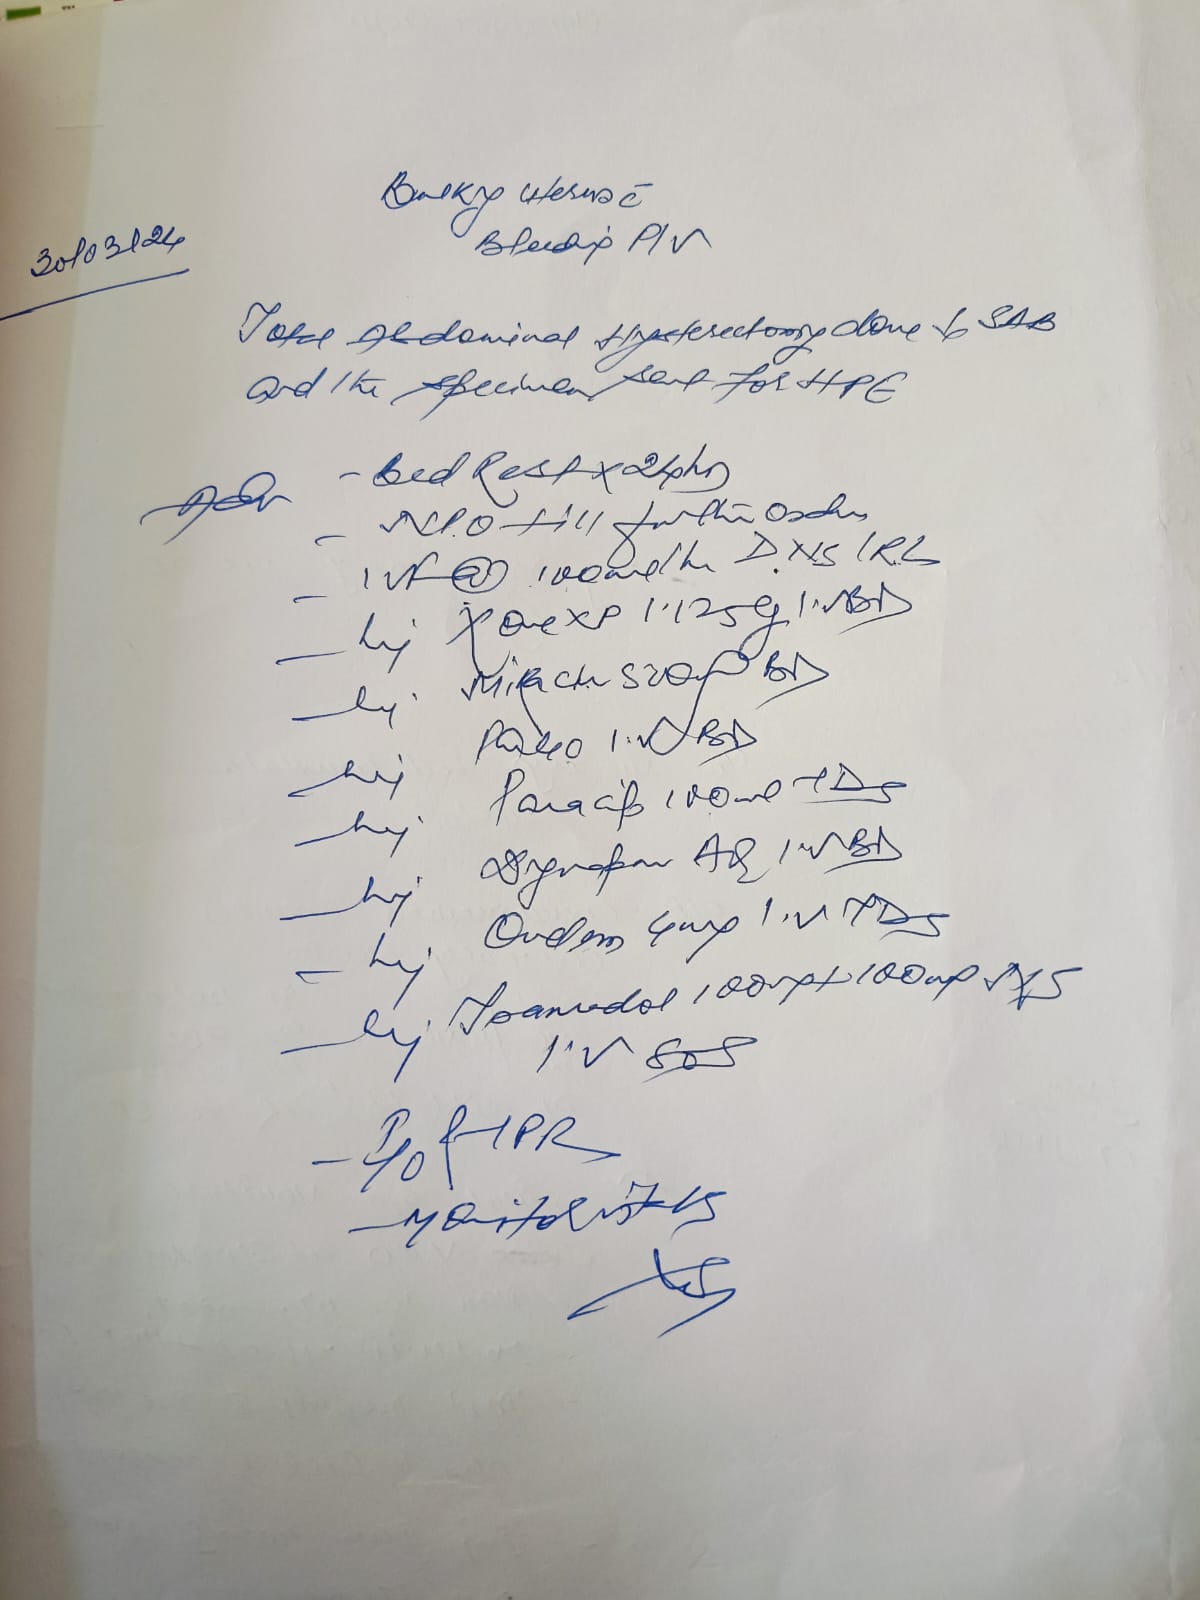 Bulky uterus c̄
Bleeding P/V
30/03/24
Total Abdominal Hysterectomy done ↓ SAB
and the specimen sent for HPE
Adv - Bed Rest x 24hrs
- N.P.O till further orders
- IVF @ 100ml/hr DNS/RL
- Inj XonexP 1.125g I.V BD
- Inj 500mg BD
- Inj I.V BD
- Inj Paracip 100ml TDS
- Inj Dynapar AQ I.V BD
- Inj Ondem 4mg I.V TDS
- Inj Tramadol 100mg + 100ml NS
I.V SOS
- I/O TPR
- Monitor vitals